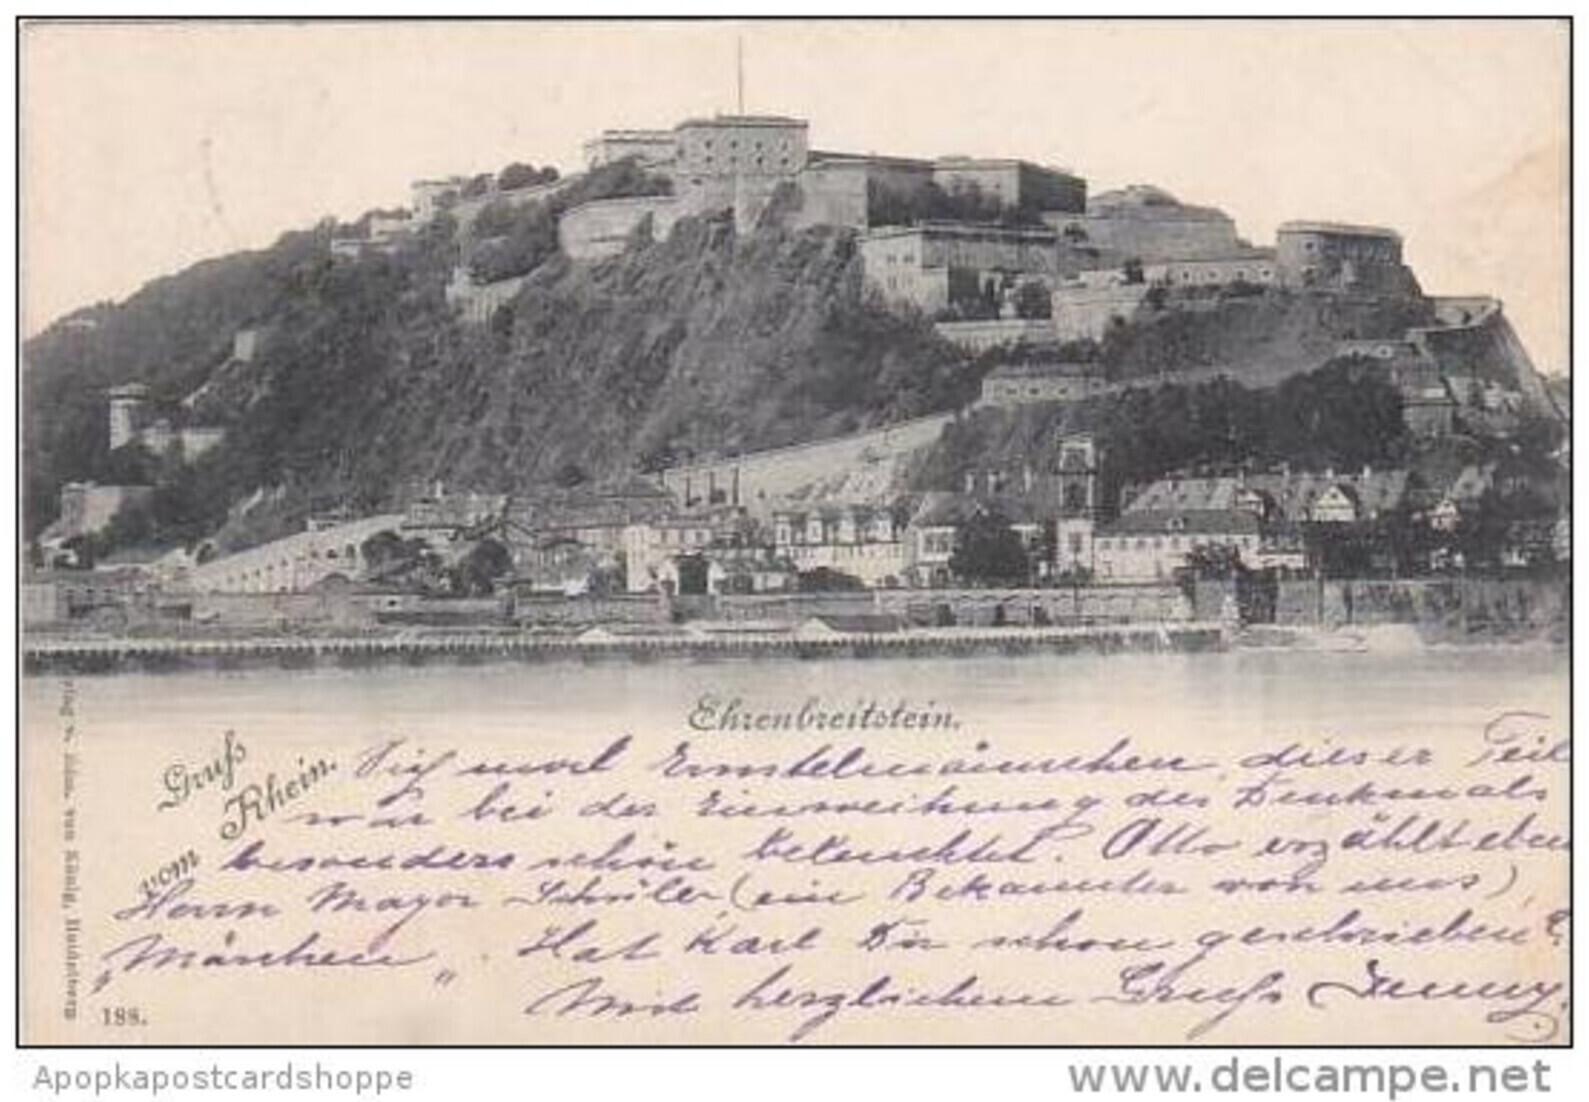 Ehrenbreitstein.
Gruß
vom Rhein.
mal dieser Teil
war bei der Einweihung des Denkmals
besonders schön beleuchtet. Otto erzählt eben
Herrn Mayor Schüler (ein Bekannter von uns)
„Märchen“. Hat Karl Dir schon geschrieben?
Mit herzlichem Gruß Jenny.
188.
Apopkapostcardshoppe
www.delcampe.net